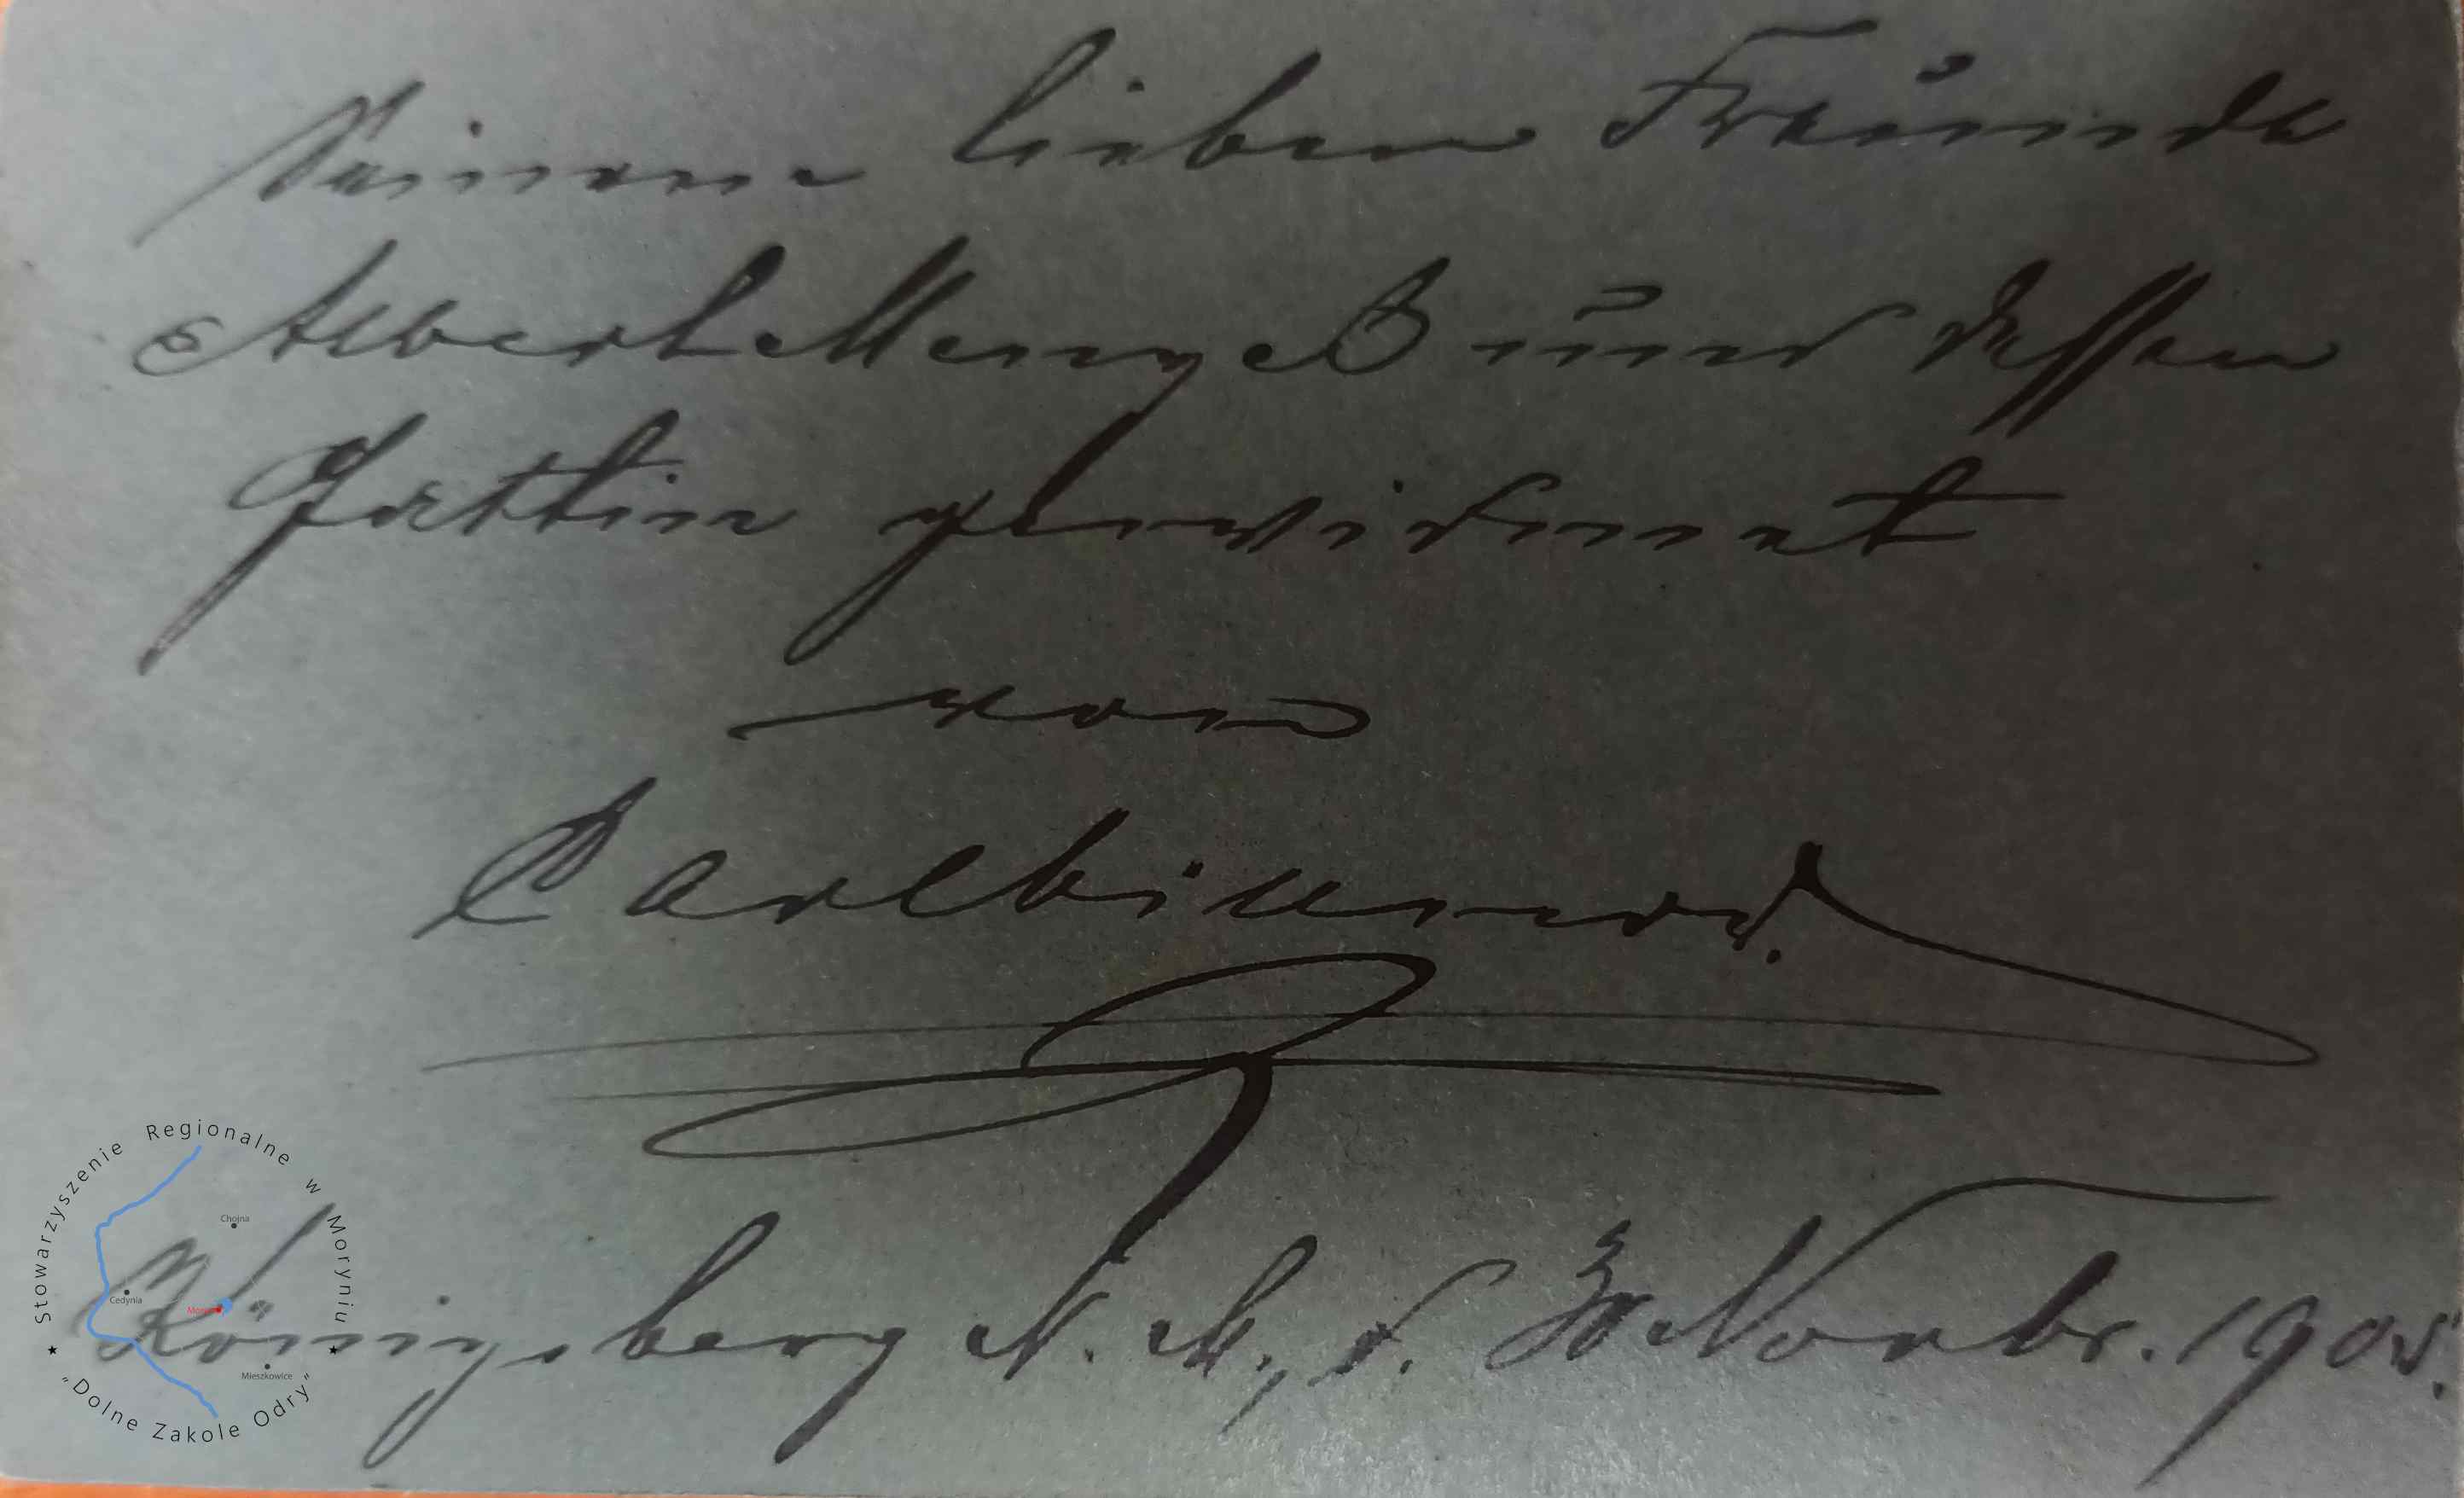 Seinem lieben Freunde
Albert Menge und dessen
Gattin gewidmet
von
Königsberg N. M., d. Novbr. 190
Stowarzyszenie Regionalne w Moryniu
"Dolne Zakole Odry"
Chojna
Cedynia
Mieszkowice